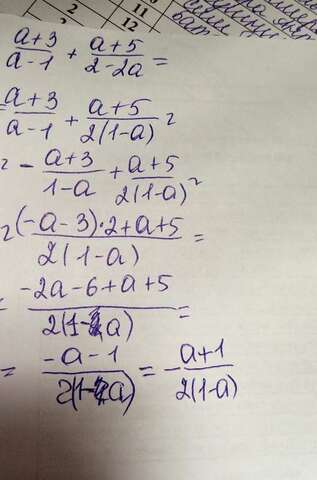 2
11
12
a+3/a-1 + a+5/2-2a =
= a+3/a-1 + a+5/2(1-a) =
= - a+3/1-a + a+5/2(1-a) =
= (-a-3)·2+a+5/2(1-a) =
= -2a-6+a+5/2(1-a) =
= -a-1/2(1-a) = - a+1/2(1-a)